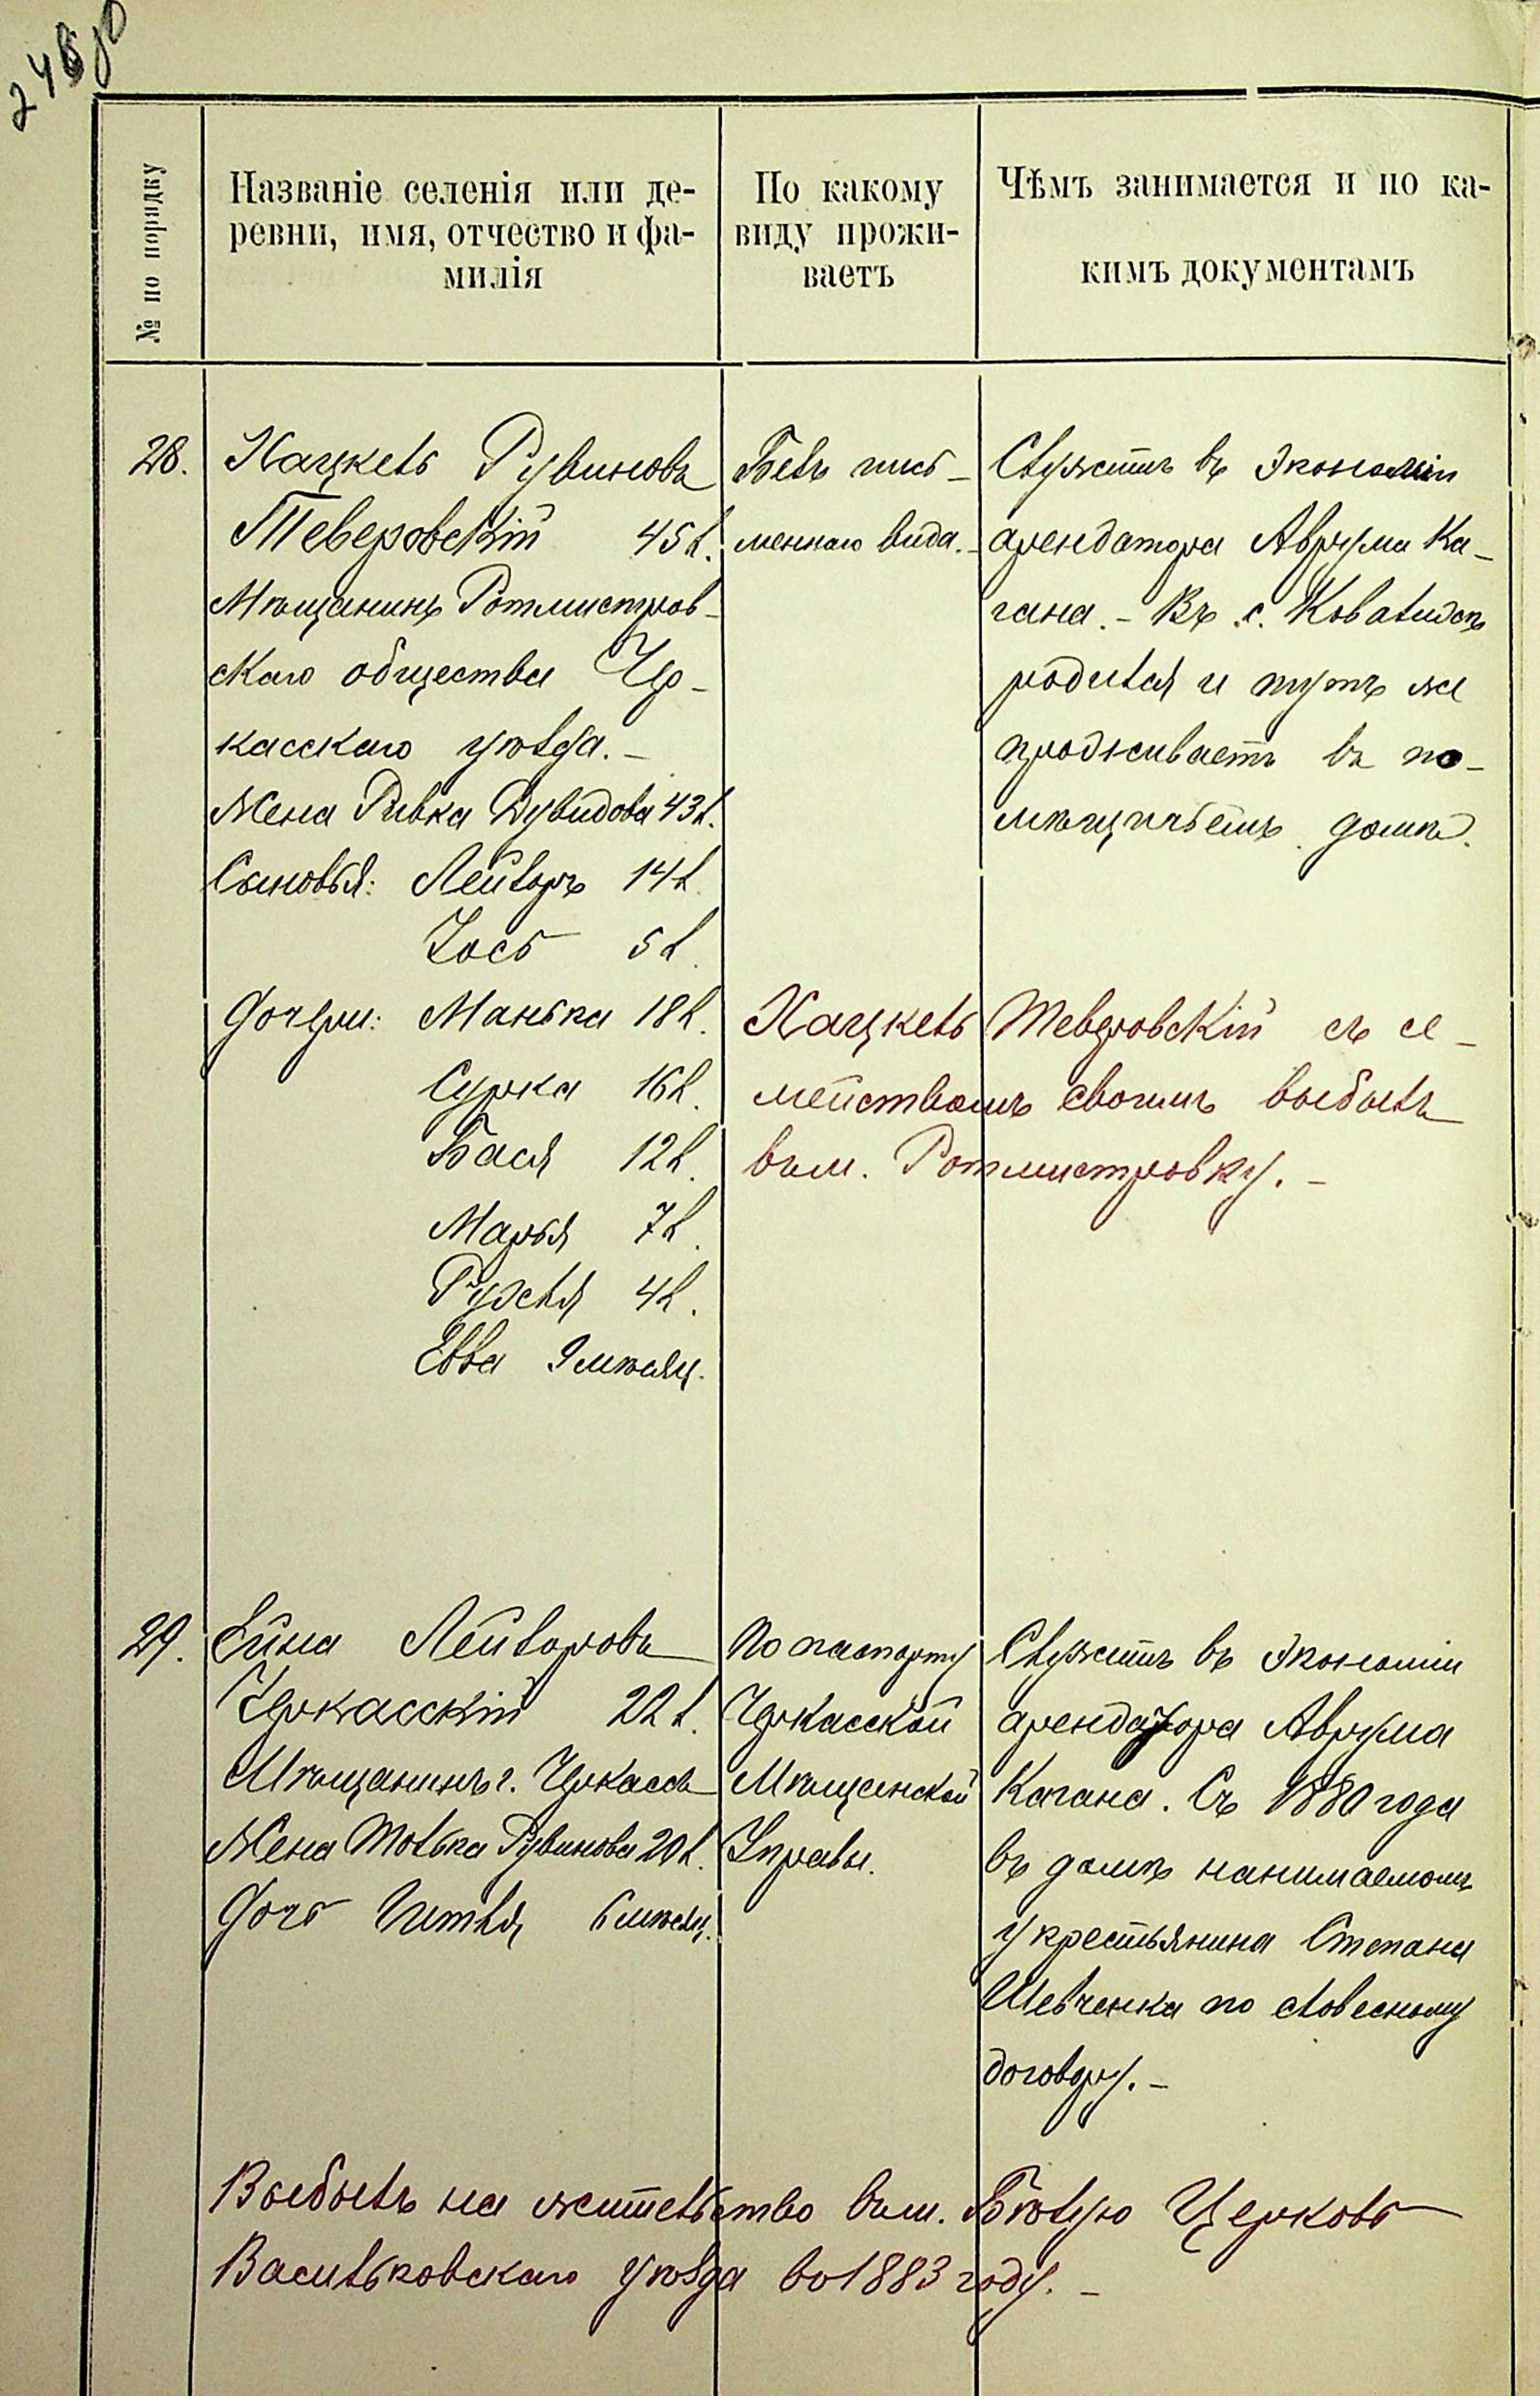 246 об
№ по порядку
Названіе селенія или де-
ревни, имя, отчество и фа-
милія
По какому
виду прожи-
ваетъ
Чѣмъ занимается и по ка-
кимъ документамъ
28.
Хацкель Рувиновъ
Тверовскій 45 л.
Мѣщанинъ Ротмистров-
скаго общества Чер-
касскаго уѣзда. -
Жена Ривка Дувидова 43 л.
Сыновья: Лейзоръ 14 л.
Іось 5 л.
Дочери: Манька 18 л.
Сурка 16 л.
Бася 12 л.
Марья 7 л.
Рухля 4 л.
Евва 9 мѣсяц.
Безъ пись-
меннаго вида. -
Служитъ въ экономіи
арендатора Аврума Ка-
гана. - Въ с. Ковалихѣ
родился и тутъ же
проживаетъ въ по-
мѣщичьемъ домѣ.
Хацкель Тверовскій съ се-
мействомъ своимъ выбылъ
въ м. Ротмистровку. -
29.
Лейзоровъ
Черкасскій 22 л.
Мѣщанинъ г. Черкассъ
Жена Толька Рувинова 20 л.
Дочь Гитля 6 мѣсяц.
По паспорту
Черкасской
Мѣщанской
Управы.
Служитъ въ экономіи
арендатора Аврума
Кагана. Съ 1880 года
въ домѣ нанимаемомъ
у крестьянина Степана
Шевченка по словесному
договору. -
Выбылъ на жительство въ м. Бѣлую Церковь
Васильковскаго уѣзда въ 1883 году. -